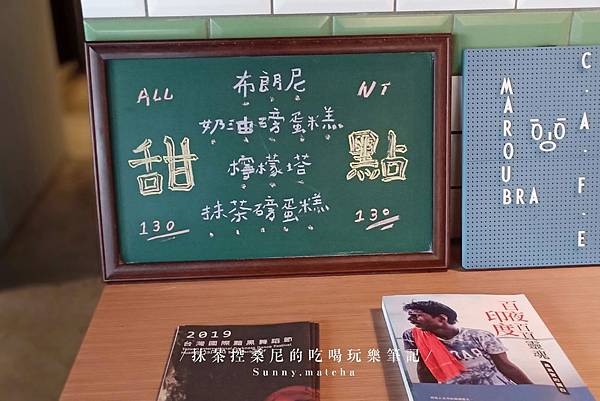 ALL
布朗尼
NT
奶油磅蛋糕
甜
檸檬塔
點
抹茶磅蛋糕
130
130
MAROUBRA
C.A.F.E
2019
台灣國際黯黑舞蹈節
百夜印度
百百靈魂
/抹茶控桑尼的吃喝玩樂筆記/
Sunny.matcha